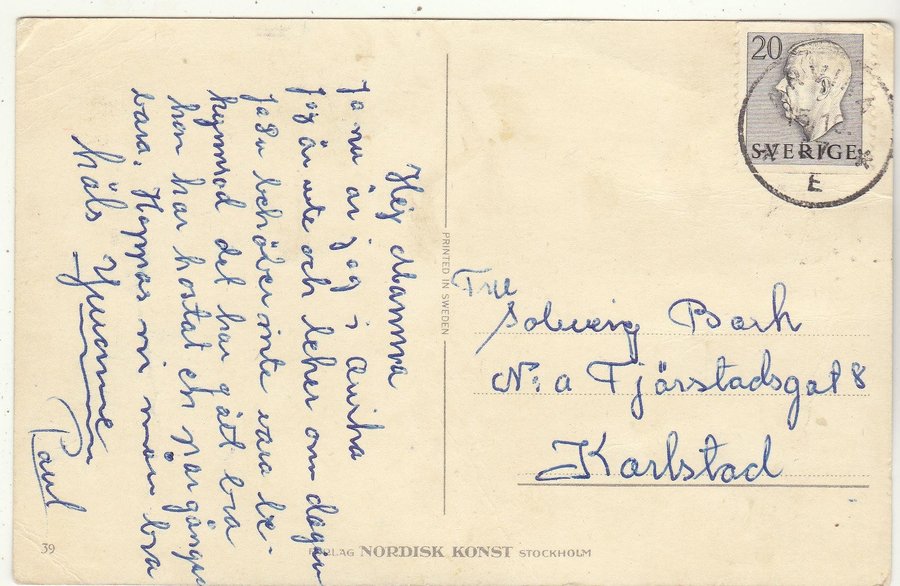 Hej Mamma
Ja nu är jag i Arvika
Jag är ute och leker om dagen
Ja du behöver inte vara be-
kymrad det har gått bra
hon har hostat ett par gånger
bara. Hoppas ni mår bra
häls Yvonne
Paul
20
SVERIGE
E
PRINTED IN SWEDEN
Fru
Solveig Bark
N:a Fjärstadsgat 8
Karlstad
39
FÖRLAG NORDISK KONST STOCKHOLM